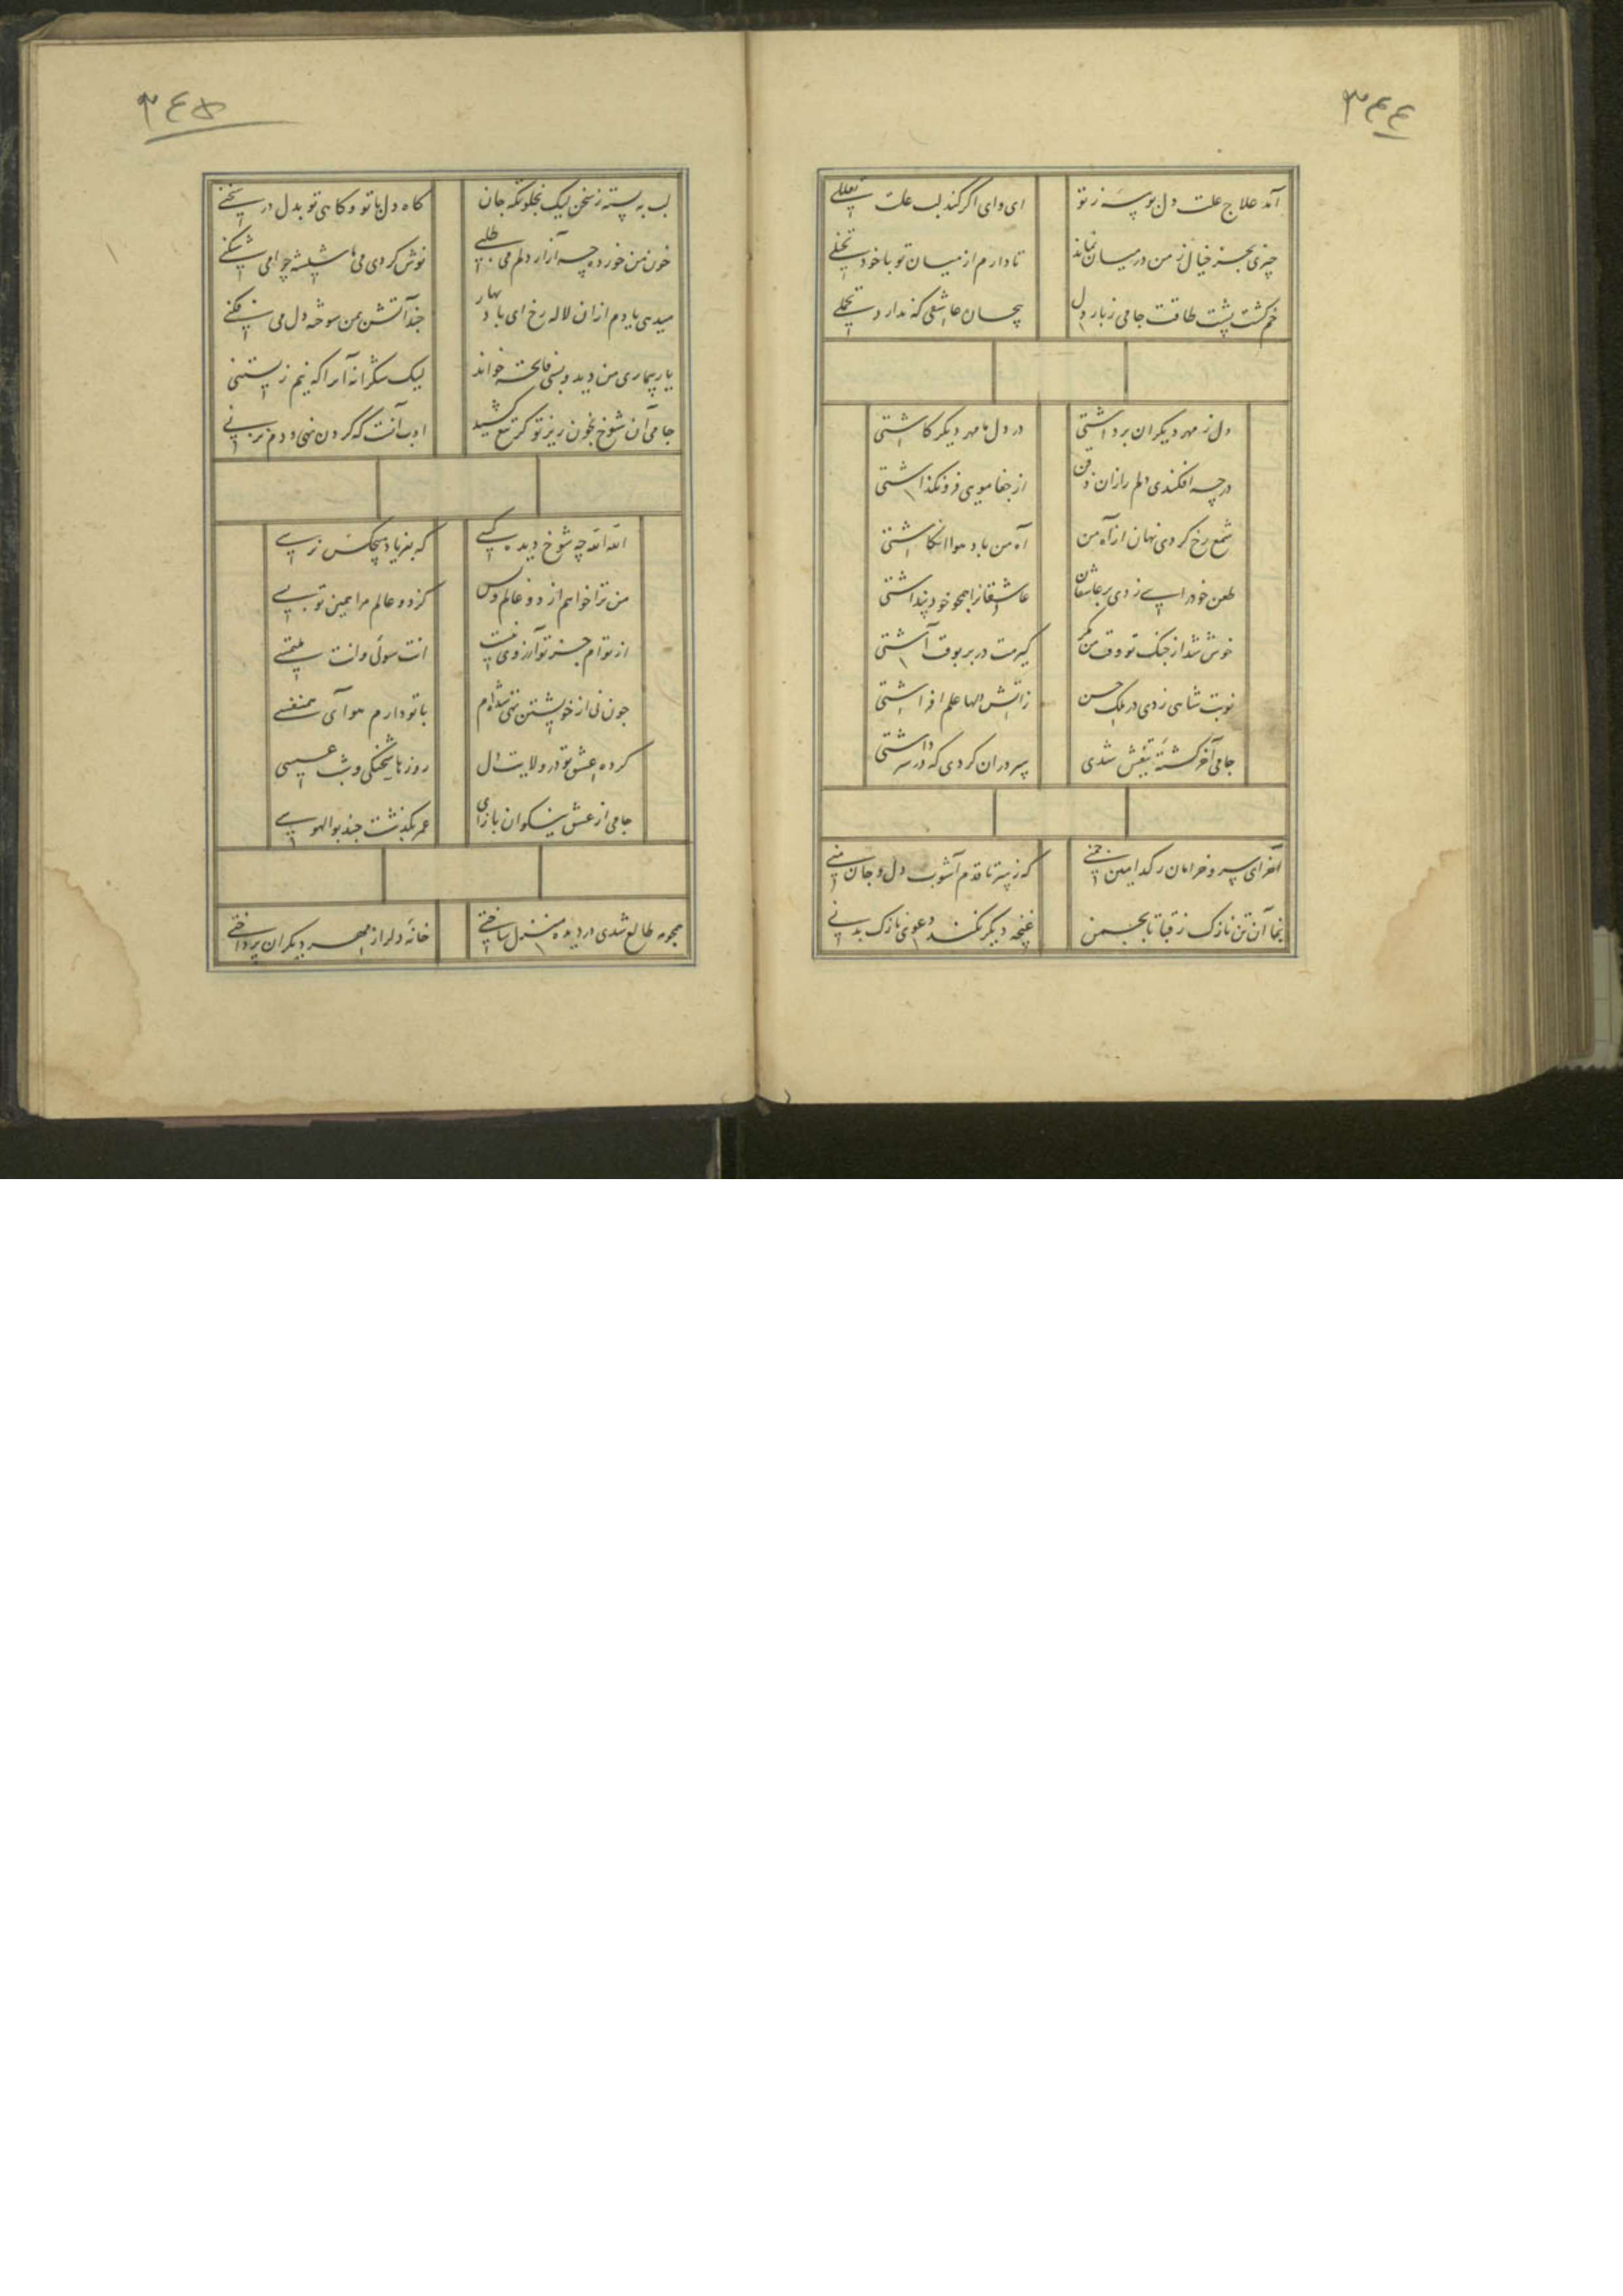 ٣٤٤
آمد علاج علت دل بوسه ز تو
ای وای اگر کند لب علت تعللی
چیزی بجز خیال ز من در میان نماند
تا دارم از میان تو با خود تخیلی
خم گشت پشت طاقت جامی ز بار دل
بیچان عاشقی که ندارد تحملی
دل ز مهر دیکران برداشتی
در دل ما مهر دیکر کاشتی
در چه افکندی دلم را زان ذقن
از جفا مویی فرو نگذاشتی
شمع رخ کردی نهان از آه من
آه من باد هوا انکاشتی
طعن خودرایی زدی بر عاشقان
عاشقانرا همچو خود پنداشتی
خوش شد از جنک تو وقت من مکر
کیرمت در بر بوقت آشتی
نوبت شاهی زدی در ملک حسن
زآتش دلها علم افراشتی
جامی آخر کشتهٔ تیغش شدی
سر در آن کردی که در سر داشتی
آخر ای سرو خرامان ز کدامین چمنی
که ز سر تا قدم آشوب دل و جان منی
بنما آن تن نازک ز قبا تا بچمن
غنچه دیکر نکند دعوی نازک بدنی
٣٤۵
لب به بسته ز سخن لیک بخلوتکه جان
کاه دل با تو و کاهی تو بدل در سخنی
خون من خورده چه آزار دلم می طلبی
نوش کردی می ما شیشه چرا می شکنی
میدهی یادم از ان لاله رخ ای باد بهار
چند آتش بمن سوخته دل می فکنی
یار بیماری من دید و بسی فاتحه خواند
لیک شکرانه آنرا که نیم زیستنی
جامی آن شوخ بخون ریز تو کر تیغ کشید
ادب آنست که کردن نهی و دم نزنی
الله الله چه شوخ دیده کسی
که بفریاد هیچکس نرسی
من ترا خواهم از دو عالم و بس
کز دو عالم مرا همین تو بسی
از توام جز تو آرزوی نیست
انت سولی وانت ملتمسی
چون نی از خویشتن تهی شده‌ام
با تو دارم هوای همنفسی
کرده عشق تو در ولایت دل
روزها شحنکی و شب عسسی
جامی از عشق نیکوان باز آی
عمر بگذشت چند بوالهوسی
همچو مه طالع شدی در دیده منزل ساختی
خانهٔ دل را از مهر دیکران پرداختی